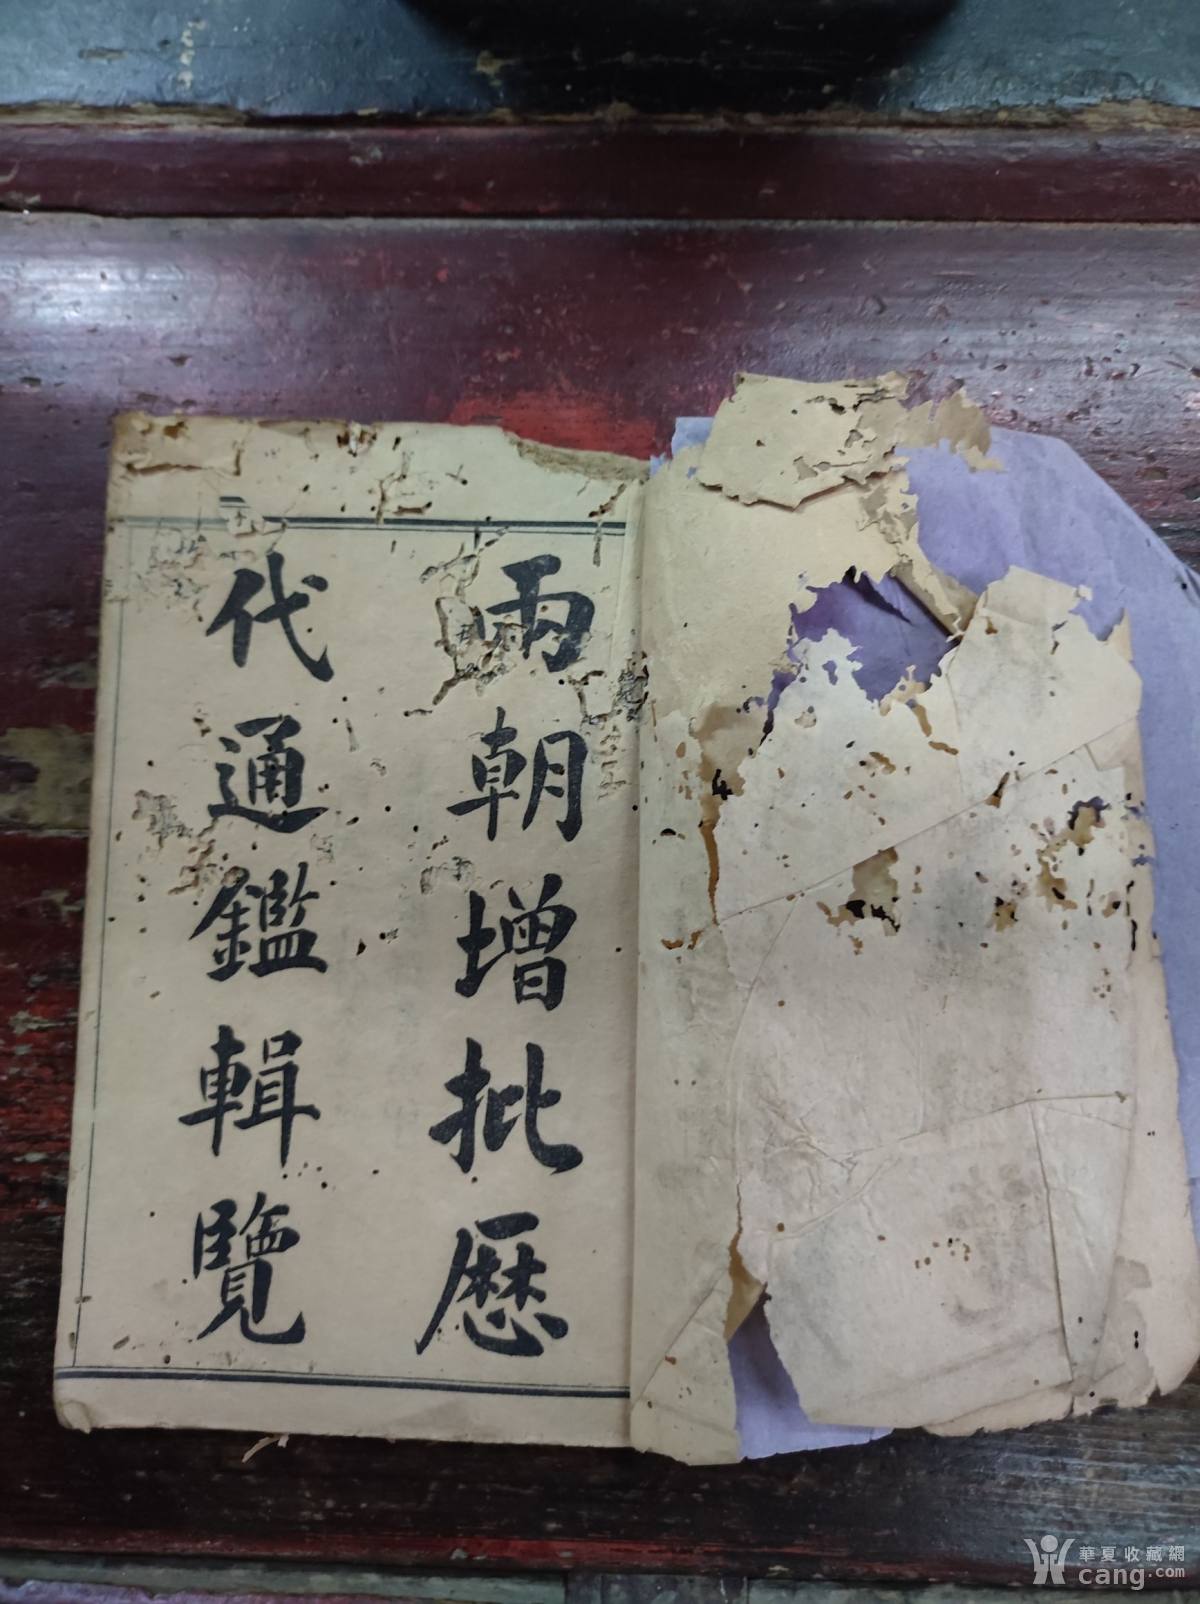 兩朝增批歷
代通鑑輯覽
華夏收藏網
cang.com